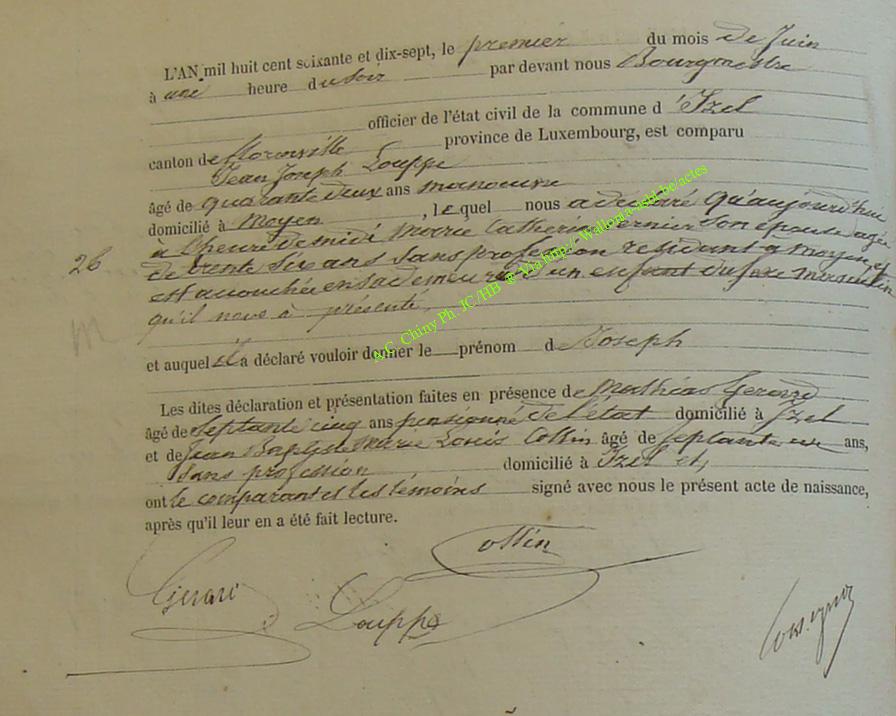 L'AN mil huit cent soixante et dix-sept, le premier du mois de Juin
à une heure du soir par devant nous Bourgmestre
officier de l'état civil de la commune d'Izel
canton de Florenville province de Luxembourg, est comparu
Jean Joseph Louppe
âgé de quarante deux ans manoeuvre
domicilié à Moyen , lequel nous a déclaré qu'aujourd'hui
à l'heure de midi Marie Catherine son épouse agée
26
de trente six ans sans profession résidant à Moyen, et
est accouchée en sa demeure d'un enfant du sexe masculin
qu'il nous à présenté,
M
et auquel il a déclaré vouloir donner le prénom de Joseph
Les dites déclaration et présentation faites en présence de Mathias Gerard
âgé de septante cinq ans pensionné de l'état domicilié à Izel
et de Jean Baptiste Marie Louis Collin âgé de septante ans,
sans profession domicilié à Izel et,
ont le comparant et les témoins signé avec nous le présent acte de naissance,
après qu'il leur en a été fait lecture.
Collin
Gerard
Louppe
A.C. Chiny Ph. JC/HB @ Via http:/ Wallonia-asbl.be/actes